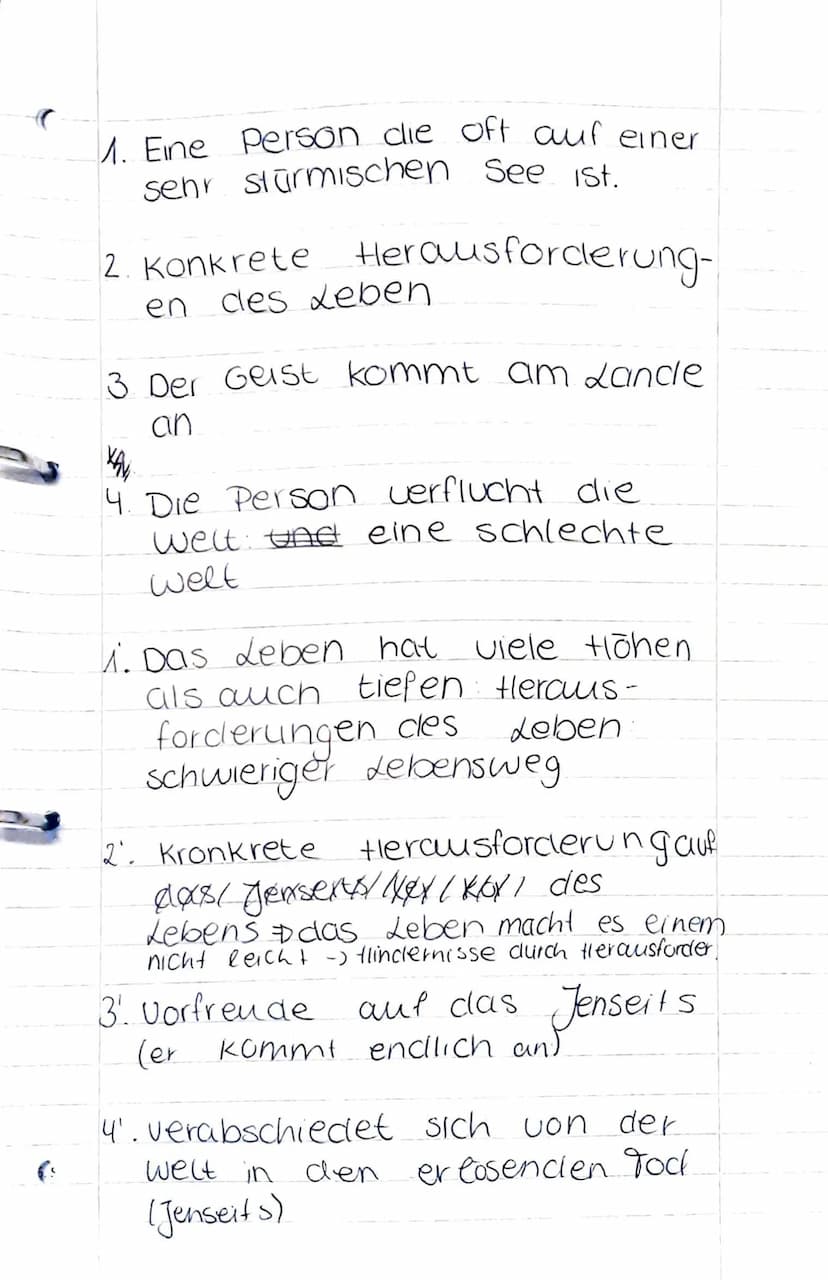 1. Eine Person die oft auf einer
sehr stürmischen See ist.
2. Konkrete Herausforderung-
en des Leben
3 Der Geist kommt am Lande
an
4. Die Person verflucht die
Welt: und eine schlechte
Welt
1'. Das Leben hat viele Höhen
als auch tiefen: Heraus-
forderungen des Leben:
schwieriger Lebensweg
2'. Kronkrete Herausforderung auf
das Jenseits des
Lebens → das Leben macht es einem
nicht leicht -> Hindernisse durch Herausforder.
3'. Vorfreude auf das Jenseits
(er kommt endlich an)
4'. verabschiedet sich von der
Welt in den erlösenden Tod
(Jenseits)